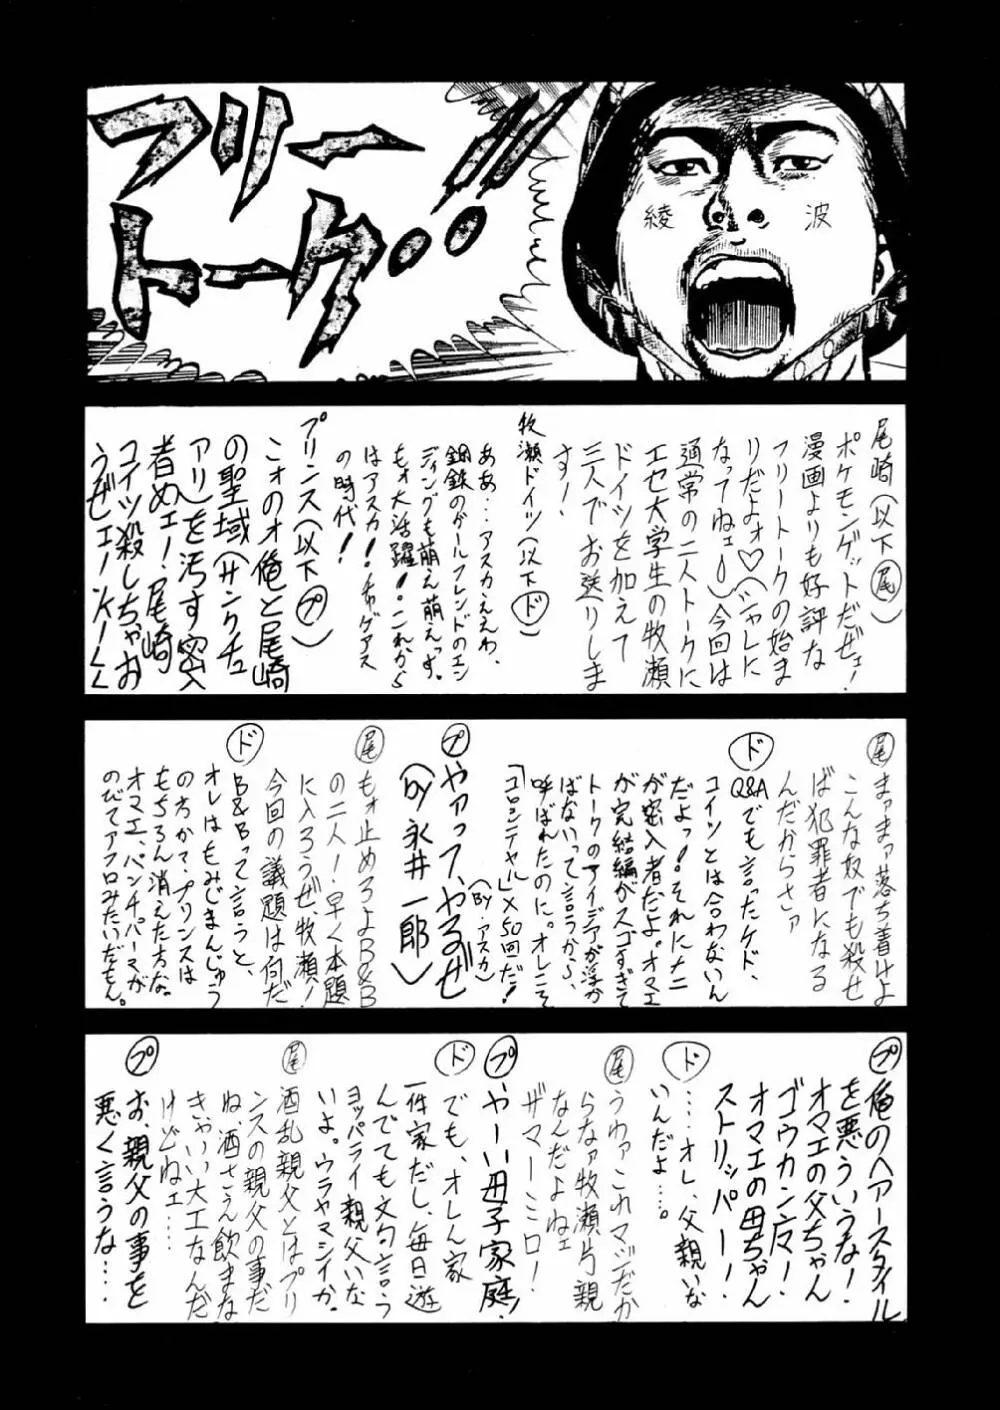 フリー
トーク!!
綾
波
尾崎(以下尾)
ポケモンゲットだぜェ!
漫画よりも好評な
フリートークの始ま
りだよォ♡(シャレに
なってねェ)今回は
通常の二人トークに
エセ大学生の牧瀬
ドイツを加えて
三人でお送りしま
す!
牧瀬ドイツ(以下ド)
ああ…アスカええわ、
鋼鉄のガールフレンドのエン
ディングも萌え萌えっす。
もォ大活躍!これから
はアスカ!
の時代!
プリンス(以下プ)
こォのォ俺と尾崎
の聖域(サンクチュ
アリ)を汚す密入
者めェ!尾崎
コイツ殺しちゃお
うぜェー!
尾
まァまァ落ち着けよ
こんな奴でも殺せ
ば犯罪者になる
んだからさァ
ド
Q&Aでも言ったケド、
コイツとは合わないん
だよっ!それにナニ
が密入者だよ。オマエ
が完結編がスゴすぎて
トークのアイデアが浮か
ばないって言うから、
呼ばれたのに。オレこそ
「コロシテヤル」×50回だ!
(BY.アスカ)
プ
やァってやるぜ
(by永井一郎)
尾
もォ止めろよB&B
の二人!早く本題
に入ろうぜ、牧瀬!
今回の議題は何だ
ド
B&Bって言うと、
オレはもみじまんじゅう
の方か?プリンスは
もちろん消えた方な。
オマエ、パンチパーマが
のびてアフロみたいだもん。
プ
俺のヘアースタイル
を悪ういうな!
オマエの父ちゃん
ゴウカン魔!
オマエの母ちゃん
ストリッパー!
ド
……オレ、父親いな
いんだよ…。
尾
うわァこれマジだか
らなァ牧瀬片親
なんだよねェ
ザマーミロ!
プ
やーい母子家庭!
ド
でも、オレん家
一件家だし、毎日遊
んでても文句言う
ヨッパライ親父いな
いよ。ウラヤマシイか。
尾
酒乱親父とはプリ
ンスの親父の事だ
ね、酒さえ飲まな
きゃいい大工なんだ
けどねェ…
プ
お、親父の事を
悪く言うな…